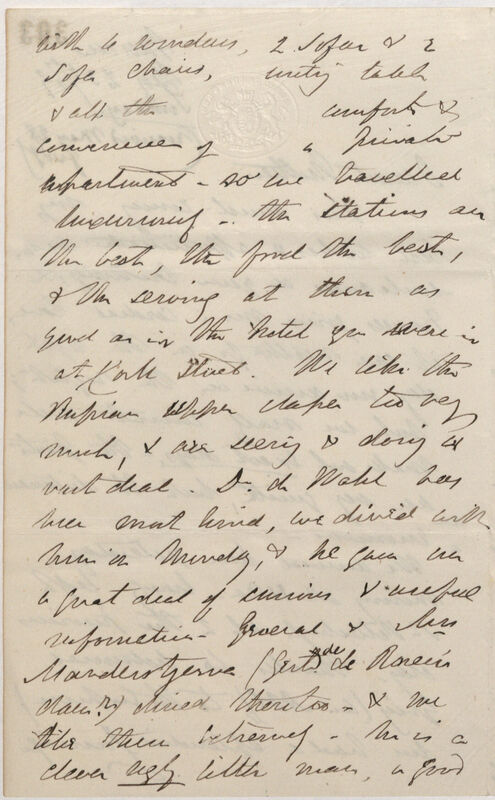 with 4 windows, 2 sofas & 2
sofa chairs, writing table
& all the comforts &
convenience of a private
apartment - so we travelled
luxuriously - the stations are
the best, the food the best,
& the serving at them as
good as in the hotel you were in
at Cork Street. We like the
Russian upper classes too very
much, & are seeing & doing a
vast deal. Dr. de Wahl has
been most kind, we dined with
him on Monday, & he gave us
a great deal of curious & useful
information - General & Mrs
Manderstjerna (Gertde. Le
daur.) dined there too - & we
like them extremely - he is a
clever ugly little man, a good